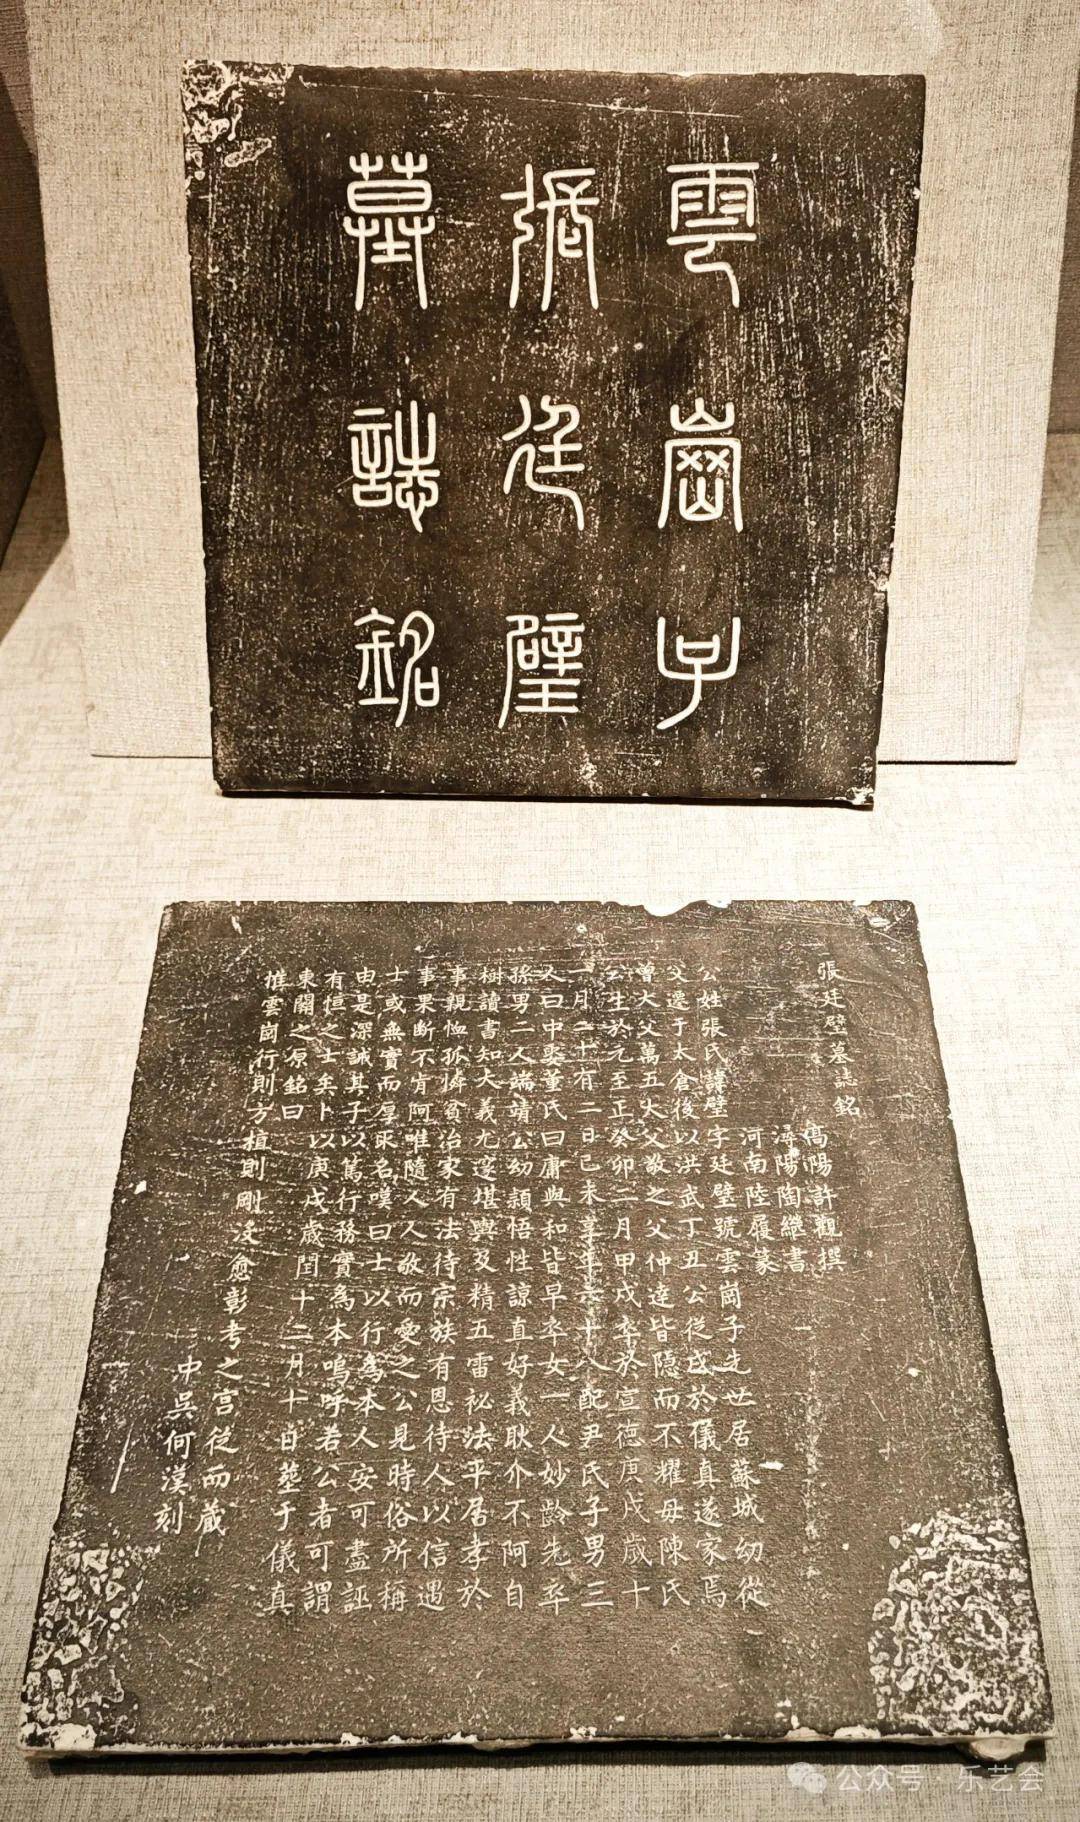 雲崗子
張廷璧
墓誌銘
張廷璧墓誌銘
高陽許觀撰
潯陽陶繼書
河南陸履篆
公姓張氏諱璧字廷璧號雲崗子先世居蘇城幼從
父遷于太倉後以洪武丁丑公從戍於儀真遂家焉
曾大父萬五大父敬之父仲達皆隱而不耀母陳氏
公生於元至正癸卯二月甲戌卒於宣德庚戌歲十
一月二十有二日己未享年六十八配尹氏子男三
人曰中娶董氏曰庸與和皆早卒女一人妙齡先卒
孫男二人端靖公幼穎悟性諒直好義耿介不阿自
樹讀書知大義尤邃堪輿及精五雷祕法平居孝於
事親恤孤憐貧治家有法待宗族有恩待人以信遇
事果断不肯阿唯隨人人敬而愛之公見時俗所稱
士或無實而厚取名嘆曰士以行為本人安可盡誣
由是深誡其子以篤行務實為本嗚呼若公者可謂
有恒之士矣卜以庚戌歲閏十二月十日塟于儀真
東關之原銘曰
惟雲崗行則方植則剛没愈彰考之宫从而蔵
中吳何漢刻
公众号·乐艺会